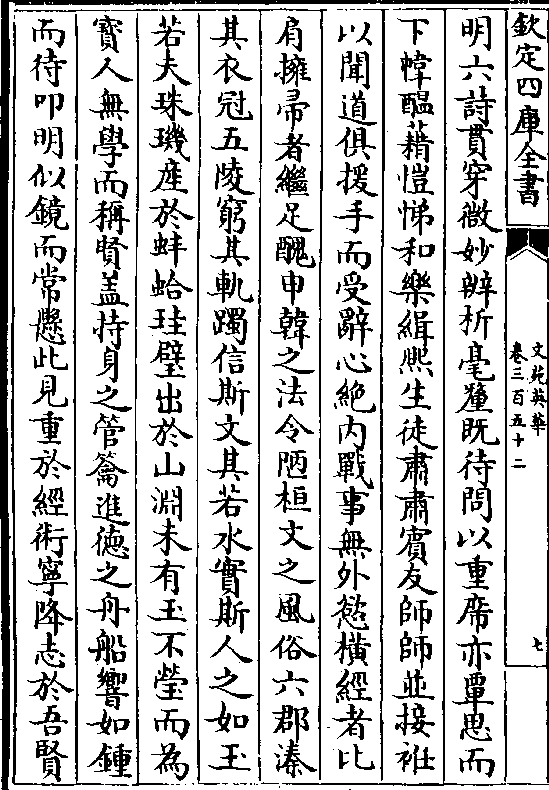 欽定四庫全書
文苑英華
卷三百五十二
七
明六詩貫穿微妙辨析毫釐既待問以重席亦覃思而
下幃醖藉愷悌和樂緝熈生徒肅肅賓友師師並接袵
以聞道俱援手而受辭心絶内戰事無外慾橫經者比
肩擁帚者繼足醜申韓之法令陋桓文之風俗六郡溱
其衣冠五陵窮其軌躅信斯文其若水實斯人之如玉
若夫珠璣産於蚌蛤珪璧出於山淵未有玉不瑩而為
寳人無學而稱賢盖持身之管籥進徳之舟船響如鍾
而待叩明似鏡而常懸此見重於經術寧降志於吾賢